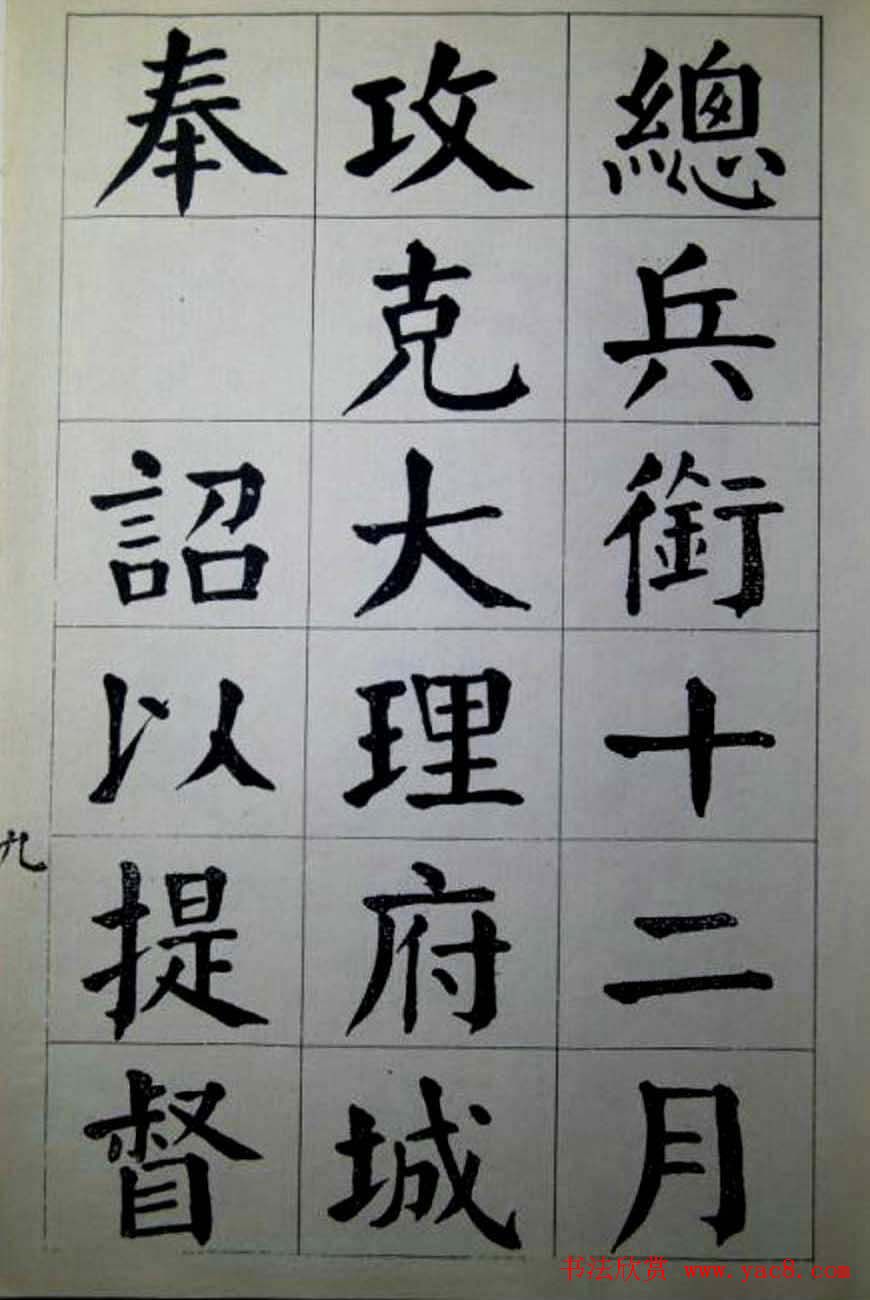 總兵銜十二月
攻克大理府城
奉 詔以提督
九
书法欣赏 www.yac8.com